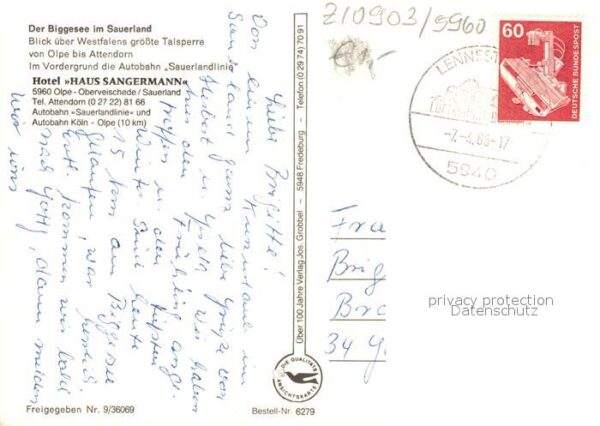 Der Biggesee im Sauerland
Blick über Westfalens größte Talsperre
von Olpe bis Attendorn
Im Vordergrund die Autobahn „Sauerlandlinie"
Hotel »HAUS SANGERMANN«
5960 Olpe - Oberveischede / Sauerland
Tel. Attendorn (0 27 22) 81 66
Autobahn »Sauerlandlinie« und
Autobahn Köln - Olpe (10 km)
Freigegeben Nr. 9/36069
Bestell-Nr 6279
Über 100 Jahre Verlag Jos. Grobbel - 5948 Fredeburg - Telefon (0 29 74) 70 91
DIE QUALITÄTS
ANSICHTSKARTE
Z10903/5960
60
DEUTSCHE BUNDESPOST
5940
Liebe Brigitte!
Von einem Kurzurlaub im
Sauerland ganz liebe Grüße von
Herbert u. Wir haben
hier den Frühling
u. den tiefsten
Winter. Sind heute
15 km am Biggesee
gelaufen, war herrlich.
kommen wir bald
nach dann melden
wir uns
Fra
Brig
Bra
34 G
privacy protection
Datenschutz